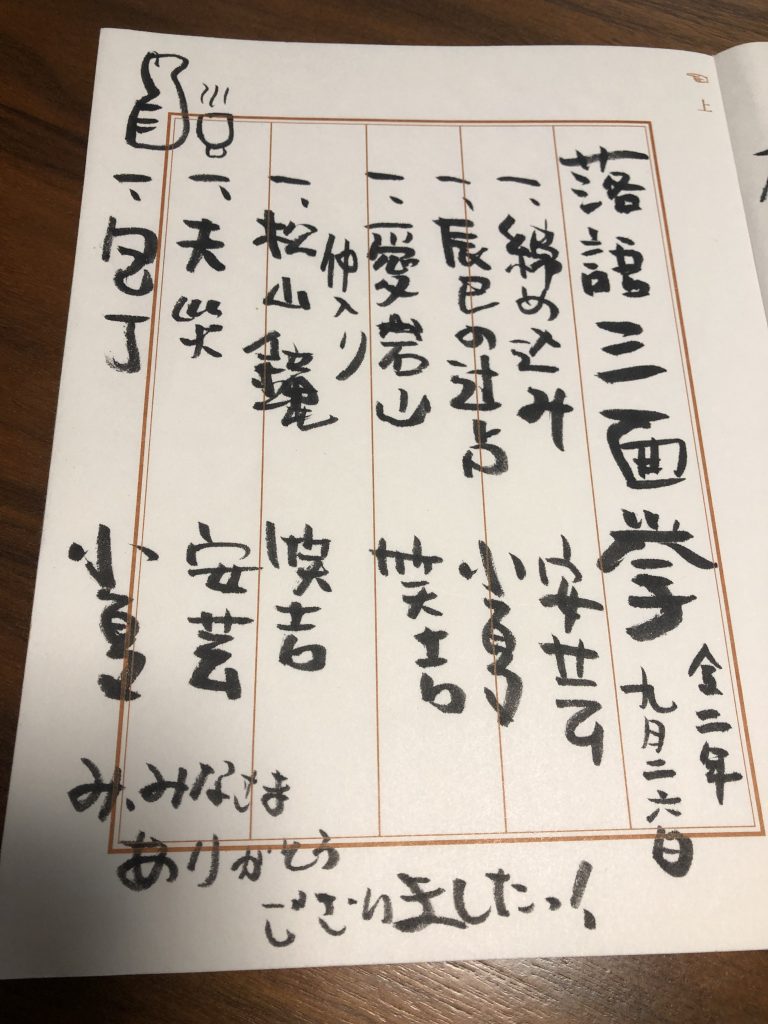 落語三面拳
二年
九月二六日
一、締め込み 安芸
一、辰巳の辻占
一、愛宕山 笑吉
仲入り
一、松山鏡 笑吉
一、天災 安芸
一、包丁
み、みなさま
ありがとう
ございましたっ!
上